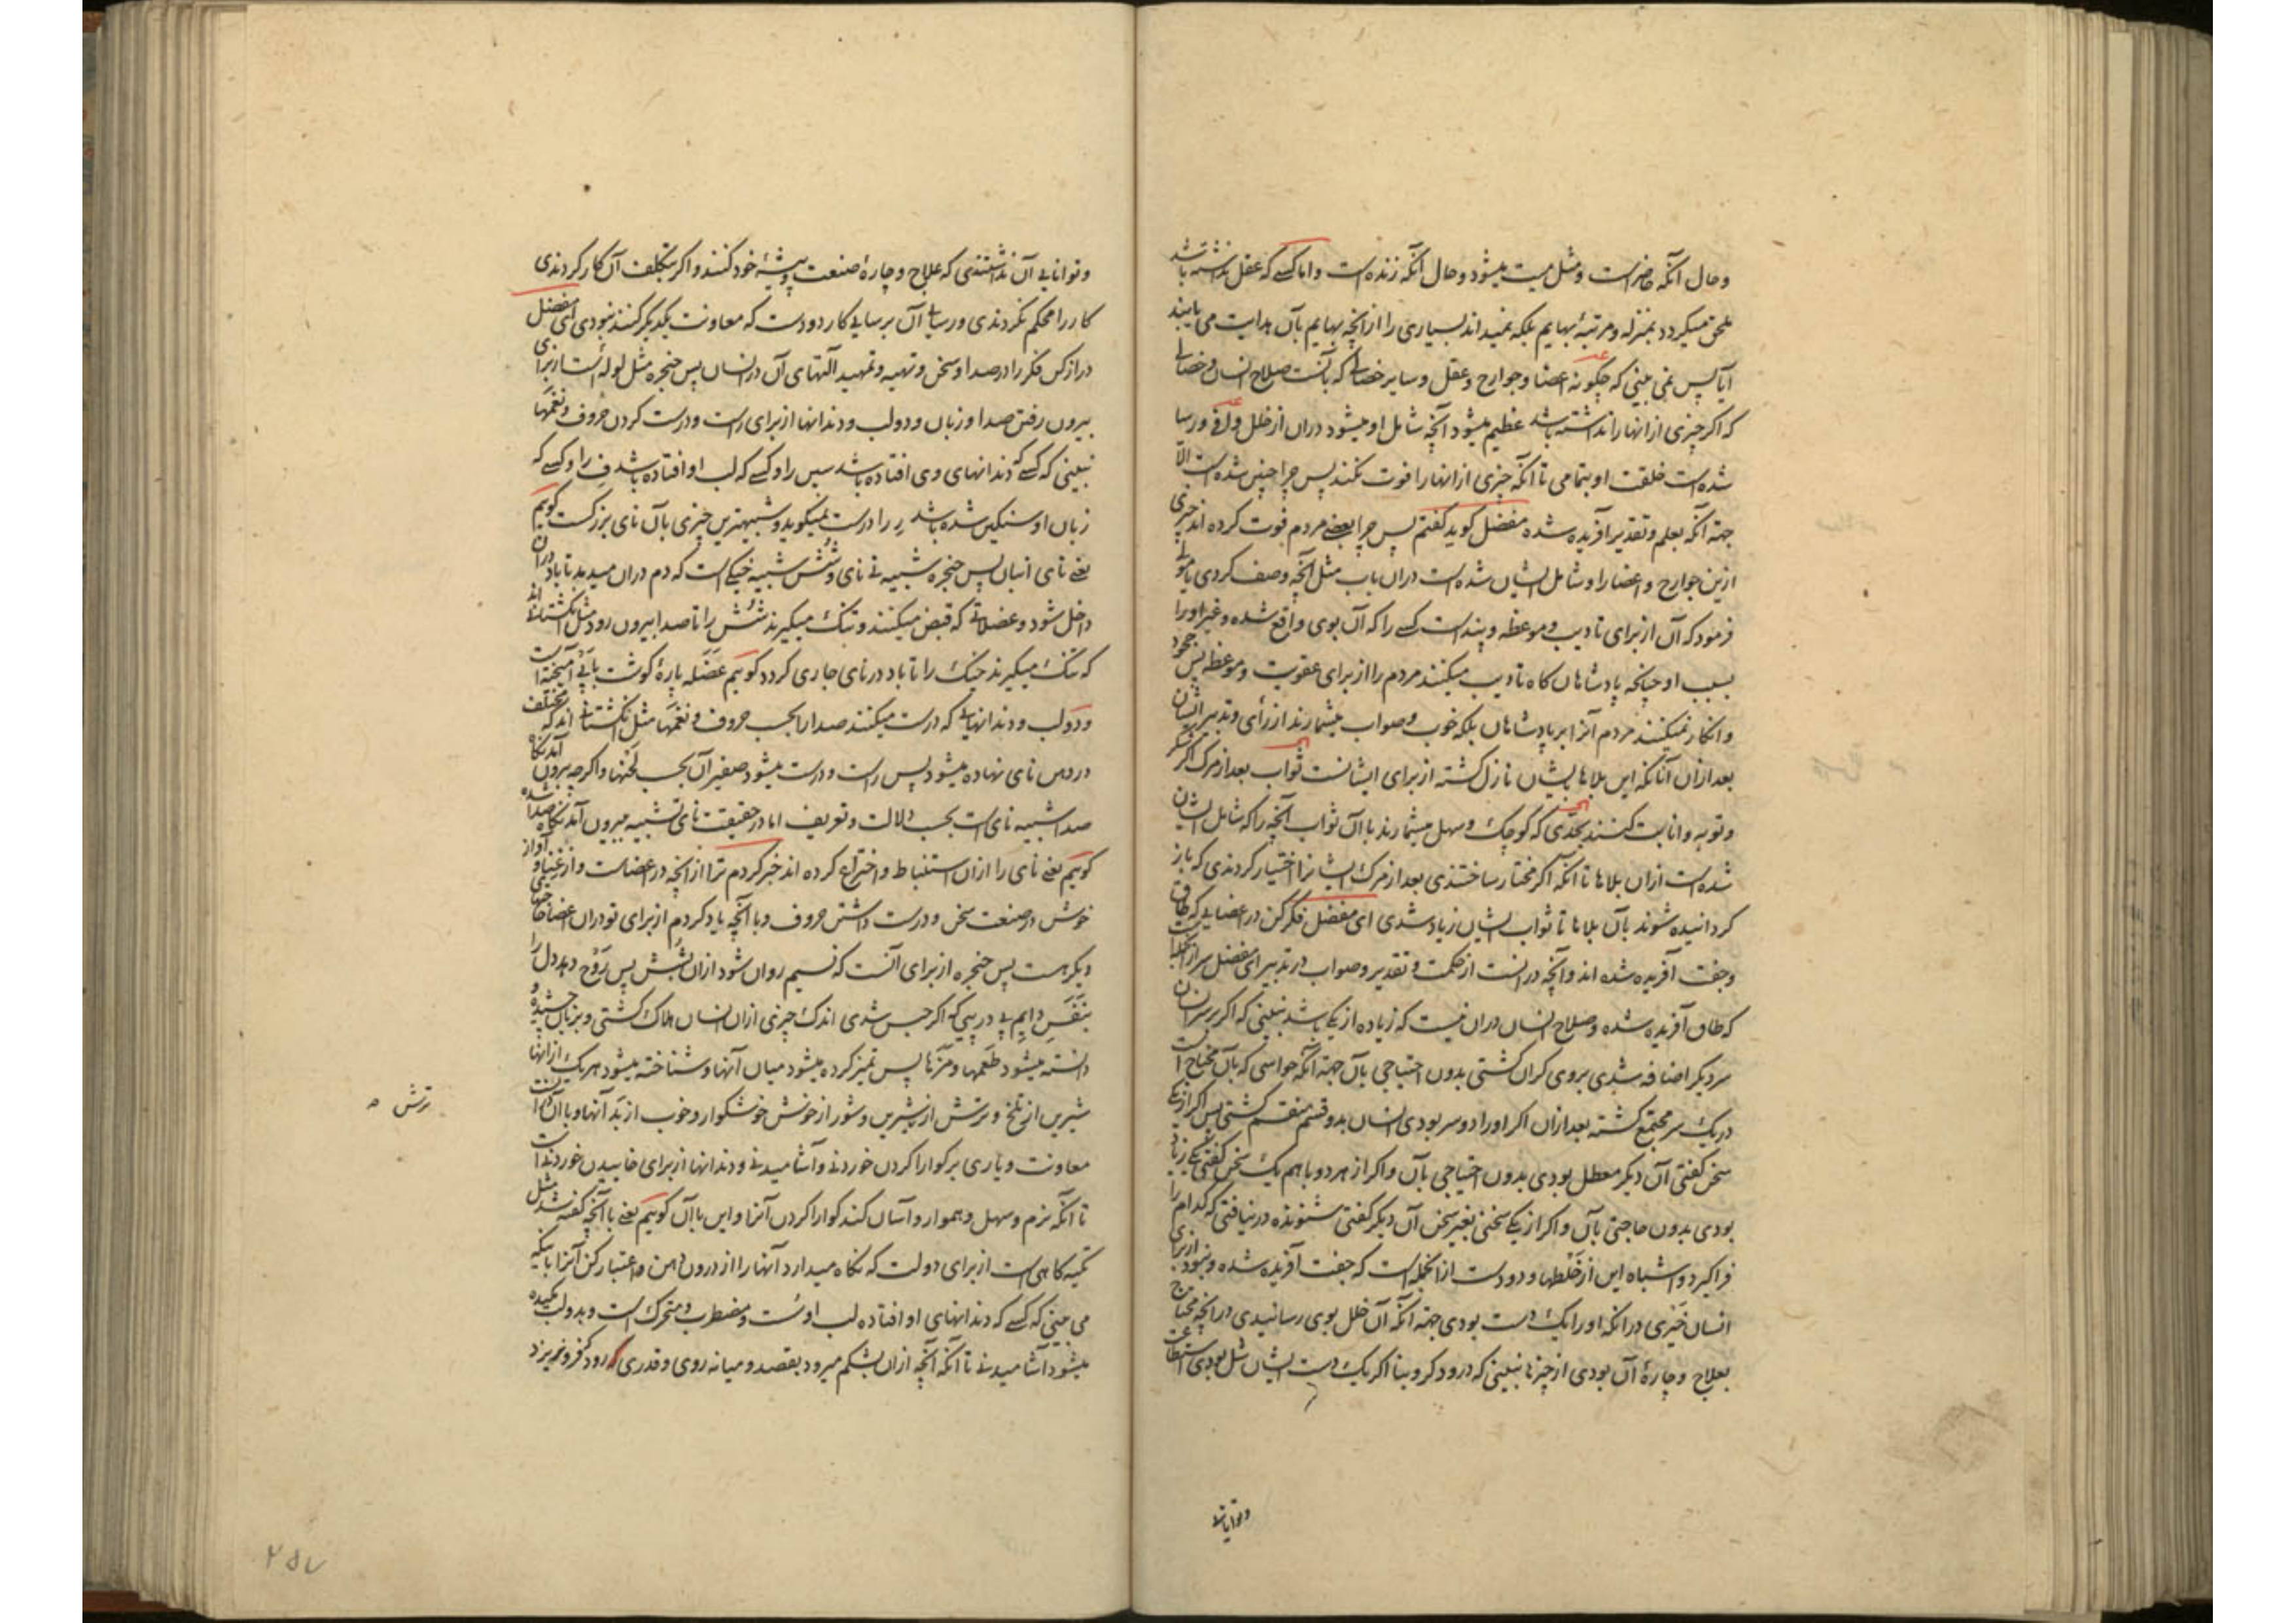 و حال آنکه حاضر است و مثل میت میشود و حال آنکه زنده است و اما کسے که عقل نداشته باشد
ملحق میگردد بمنزله و مرتبهٔ بهایم بلکه نمیداند بسیاری را از آنچه بهایم بآن هدایت می یابند
آیا پس نمی بینی که چگونه اعضا و جوارح و عقل و سایر خصالی که بآنست صلاح انسان و خصالی
که اگر چیزی از انها را نداشته باشد عظیم میشود آنچه شامل او میشود دران از خلل وافی و رسا
شده است خلقت او بتمامی تا آنکه چیزی از انها را فوت نکند پس چرا چنین شده است الّا
جهة آنکه بعلم و تقدیر آفریده شده مفضل گوید گفتم پس چرا بعضے مردم فوت کرده اند چیزی
ازین جوارح و اعضا را و شامل ایشان شده است دران باب مثل آنچه وصف کردی یا مولی
فرمود که آن از برای تادیب و موعظه و پند است کسے را که آن بوی واقع شده و غیر او را
بسبب او چنانچه پادشاهان گاه تادیب میکنند مردم را از برای عقوبت و موعظه پس
و انکار نمیکنند مردم آنرا بر پادشاهان بلکه خوب و صواب میشمارند از رأی و تدبیر ایشان
بعد ازان آنانکه این بلاها بایشان نازل گشته از برای ایشانست ثواب بعد از مرگ اگر شکر
و توبه و انابت کنند بحدّی که کوچک و سهل میشمارند با آن ثواب آنچه را که شامل ایشان
شده است ازان بلاها تا آنکه اگر مختار ساختندی بعد از مرگ ایشانرا اختیار کردندی که باز
گردانیده شوند بآن بلاها تا ثواب ایشان زیاد شدی ای مفضل فکر کن در اعضایے که طاق
و جفت آفریده شده اند و آنچه درانست از حکمت و تقدیر و صواب در تدبیر ای مفضل سر ازانجمله است
که طاق آفریده شده و صلاح انسان دران نیست که زیاده از یکے باشد نبینی که اگر بر سر انسان
سر دیگر اضافه شدی بروی گران گشتی بدون احتیاجی بآن جهة آنکه حواسی که بآن محتاج است
در یک سر مجتمع گشته بعد ازان اگر او را دو سر بودی انسان بدو قسم منقسم گشتی پس اگر از یکے
سخن گفتی آن دیگر معطل بودی بدون احتیاجی بآن و اگر از هر دو با هم یک سخن گفتی یکے زیاد
بودی بدون حاجتی بآن و اگر از یکے سخنی بغیر سخن آن دیگر گفتی شنونده درنیافتی که کدام را
فراگیرد و اشباه این از خلطها و دو دست ازانجمله است که جفت آفریده شده و نبود از برای
انسان خیری در آنکه او را یک دست بودی جهة آنکه آن خلل بوی رسانیدی در آنچه محتاج
بعلاج و چارهٔ آن بودی از چیزها نبینی که درودگر و بنا اگر یک دست ایشان شل بودی استطاعت
و توانایی
و توانایی آن نداشتندی که علاج و چارهٔ صنعت و پیشهٔ خود کنند و اگر بتکلف آن کار کردندی
کار را محکم نکردندی و رسایے آن برسایے کار دو دست که معاونت یکدیگر کنند نبودی ای مفضل
دراز کن فکر را در صدا و سخن و تهیه و تمهید آلتهای آن در انسان پس حنجره مثل لوله است از برای
بیرون رفتن صدا و زبان و دو لب و دندانها از برای راست و درست کردن حروف و نغمها
نبینی که کسے که دندانهای وی افتاده باشد سین را و کسے که لب او افتاده باشد ف را و کسے که
زبان او سنگین شده باشد رر را درست نمیگوید و شبیهترین چیزی بآن نای بزرگست گویم
یعنے نای انبان پس حنجره شبیه نے نای و شش شبیه خیکے است که دم دران میدمد تا باد دران
داخل شود و عضلاتے که قبض میکنند و تنگ میگیرند شش را تا صدا بیرون رود مثل انگشتانند
که تنگ میگیرند خیک را تا باد در نای جاری گردد گویم عضله پارهٔ گوشت باپے آمیخته است
و دو لب و دندانهایے که درست میکنند صدا را بحسب حروف و نغمها مثل انگشتانے اند که مختلف
در دهن نای نهاده میشود پس راست و درست میشود صفیر آن بحسب لحنها و اگرچه بیرون آمدنگاه
صدا شبیه نای است بحسب دلالت و تعریف اما در حقیقت نای شبیه بیرون آمدنگاه صدا شده
گویم یعنے نای را ازان استنباط و اختراع کرده اند خبر کردم ترا از آنچه در اعضاست و از غنیمی و آواز
خوش در صنعت سخن و درست داشتن حروف و با آنچه یاد کردم از برای تو دران اعضا حاجتها
دیگر هست پس حنجره از برای آنست که نسیم روان شود ازان بشش پس رَوْح دهد دل را
بنَفَسِ دایم پے در پیے که اگر حبس شدی اندک چیزی ازان انسان هلاک گشتی و بزبان چشیده و
دانسته میشود طعمها و مزها پس تمیز کرده میشود میان آنها و شناخته میشود هر یک از انها
شیرین از تلخ و ترش از شیرین و شور از خوش خوشگوار و خوب از بد آنها و با آن
معاونت و یاری بر گوارا کردن خوردنے و آشامیدنے و دندانها از برای خاییدن خوردنے است
تا آنکه نرم و سهل و هموار و آسان کند گوارا کردن آنرا و این با آن گویم یعنے با آنچه گفته شد مثل
تکیه گاهی است از برای دو لب که نگاه میدارد آنها را از درون دهن و اعتبار کن آنرا باینکه
می بینی که کسے که دندانهای او افتاده لب او سست و مضطرب و متحرک است و بدو لب مکیده
میشود آشامیدنے تا آنکه آنچه ازان بشکم میرود بقصد و میانه روی و قدری رود که فرو نریزد
ترش